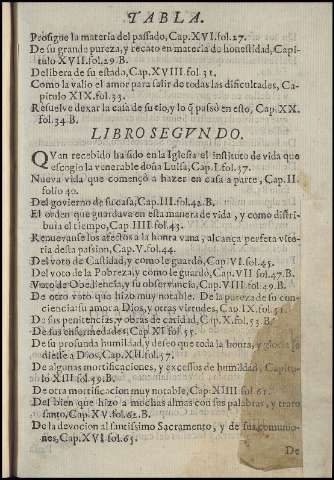 TABLA.
Prosigue la materia del passado, Cap.XVI.fol.27.
De su grande pureza, y recato en materia de honestidad, Capi-
tulo XVII.fol.29.B.
Delibera de su estado, Cap.XVIII.fol.31.
Como la valio el amor para salir de todas las dificultades, Ca-
pitulo XIX.fol.33.
Resuelve dexar la casa de su tio, y lo q̃ passò en esto, Cap.XX.
fol.34.B.
LIBRO SEGVNDO.
QVan recebido ha sido en la Iglesia el instituto de vida que
escogio la venerable doña Luisa, Cap.I.fol.37.
Nueva vida que començò a hazer en casa a parte, Cap.II.
folio 40.
Del govierno de su casa, Cap.III.fol.42.B.
El orden que guardava en esta manera de vida, y como distri-
buia el tiempo, Cap.IIII.fol.43.
Renuevanse los afectos a la honra vana, alcança perfeta vito-
ria desta passion, Cap.V.fol.44.
Del voto de Castidad, y como le guardò, Cap.VI.fol.45.
Del voto de la Pobreza, y como le guardò, Cap.VII.fol.47.B.
Voto de Obediencia, y su observancia, Cap.VIII.fol.49.B.
De otro voto que hizo muy notable. De la pureza de su con-
ciencia, su amor a Dios, y otras virtudes, Cap.IX.fol.51.
De sus penitencias, y obras de caridad, Cap.X.fol.53.B.
De sus enfermedades, Cap.XI.fol.55.
De su profunda humildad, y deseo que toda la honra, y gloria se
diesse a Dios, Cap.XII.fol.57.
De algunas mortificaciones, y excessos de humildad, Capitu-
lo XIII.fol.59.B.
De otra mortificacion muy notable, Cap.XIIII.fol.61.
Del bien que hizo a muchas almas con sus palabras, y trato
santo, Cap.XV.fol.62.B.
De la devocion al santissimo Sacramento, y de sus comunio-
nes, Cap.XVI.fol.65.
De